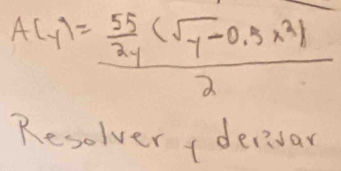 A(y) = \frac{\frac{55}{2y} (\sqrt{y} - 0.5x^2)}{2}
Resolver y derivar